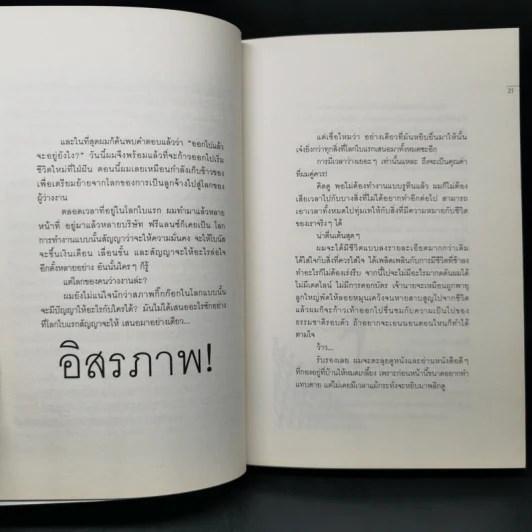 และในที่สุดผมก็ค้นพบคำตอบแล้วว่า "ออกไปแล้ว
จะอยู่ยังไง?" วันนี้ผมจึงพร้อมแล้วที่จะก้าวออกไปเริ่ม
ชีวิตใหม่ที่ใฝ่ฝัน ตอนนี้ผมเลยเหมือนกำลังเก็บข้าวของ
เพื่อเตรียมย้ายจากโลกของการเป็นลูกจ้างไปสู่โลกของ
ผู้ว่างงาน
ตลอดเวลาที่อยู่ในโลกใบแรก ผมทำมาแล้วหลาย
หน้าที่ อยู่มาแล้วหลายบริษัท ฟรีแลนซ์ก็เคยเป็น โลก
การทำงานแบบนั้นสัญญาว่าจะให้ความมั่นคง จะให้โบนัส
จะขึ้นเงินเดือน เลื่อนขั้น และสัญญาจะให้อะไรล่อใจ
อีกตั้งหลายอย่าง อันนั้นใครๆ ก็รู้
แต่โลกของคนว่างงานล่ะ?
ผมยังไม่แน่ใจนักว่าสภาพกิ๊กก๊อกในโลกแบบนั้น
จะมีปัญญาให้อะไรกับใครได้? มันไม่ได้เสนออะไรซักอย่าง
ที่โลกใบแรกสัญญาจะให้ เสนอมาอย่างเดียว...
อิสรภาพ!
21
แต่เชื่อไหมว่า อย่างเดียวที่มันหยิบยื่นมาให้นั้น
เจ๋งยิ่งกว่าทุกสิ่งที่โลกใบแรกเสนอมาทั้งหมดซะอีก
การมีเวลาว่างเยอะๆ เท่านั้นแหละ ถึงจะเป็นคุณค่า
ที่ผมคู่ควร!
คิดดู พอไม่ต้องทำงานแบบรูทีนแล้ว ผมก็ไม่ต้อง
เสียเวลาไปกับบางสิ่งที่ไม่ได้อยากทำอีกต่อไป สามารถ
เอาเวลาทั้งหมดไปทุ่มเทให้กับสิ่งที่มีความหมายกับชีวิต
ของเราจริงๆ ได้
น่าตื่นเต้นสุดๆ
ผมจะได้มีชีวิตแบบลงรายละเอียดมากกว่าเดิม
ได้ใส่ใจกับสิ่งที่ควรใส่ใจ ได้เพลิดเพลินกับการมีชีวิตที่ช้าลง
ทำอะไรก็ไม่ต้องเร่งรีบ จากนี้ไปจะไม่มีอะไรมากดดันผมได้
ไม่มีเดดไลน์ ไม่มีการตอกบัตร เจ้านายจะเหมือนถูกพายุ
ลูกใหญ่พัดให้ลอยหมุนคว้างจนหายสาบสูญไปจากชีวิต
แล้วผมก็จะก้าวเท้าออกไปชื่นชมกับความเป็นไปของ
ธรรมชาติรอบตัว ถ้าอยากจะเอนนอนตอนไหนก็ทำได้
ตามใจ
ว้าว...
รับรองเลย ผมจะตะลุยดูหนังและอ่านหนังสือดีๆ
ที่กองอยู่ที่บ้านให้หมดเกลี้ยง เพราะก่อนหน้านี้ขนาดอยากทำ
แทบตาย แต่ไม่เคยมีเวลาแม้กระทั่งจะหยิบมาพลิกดู